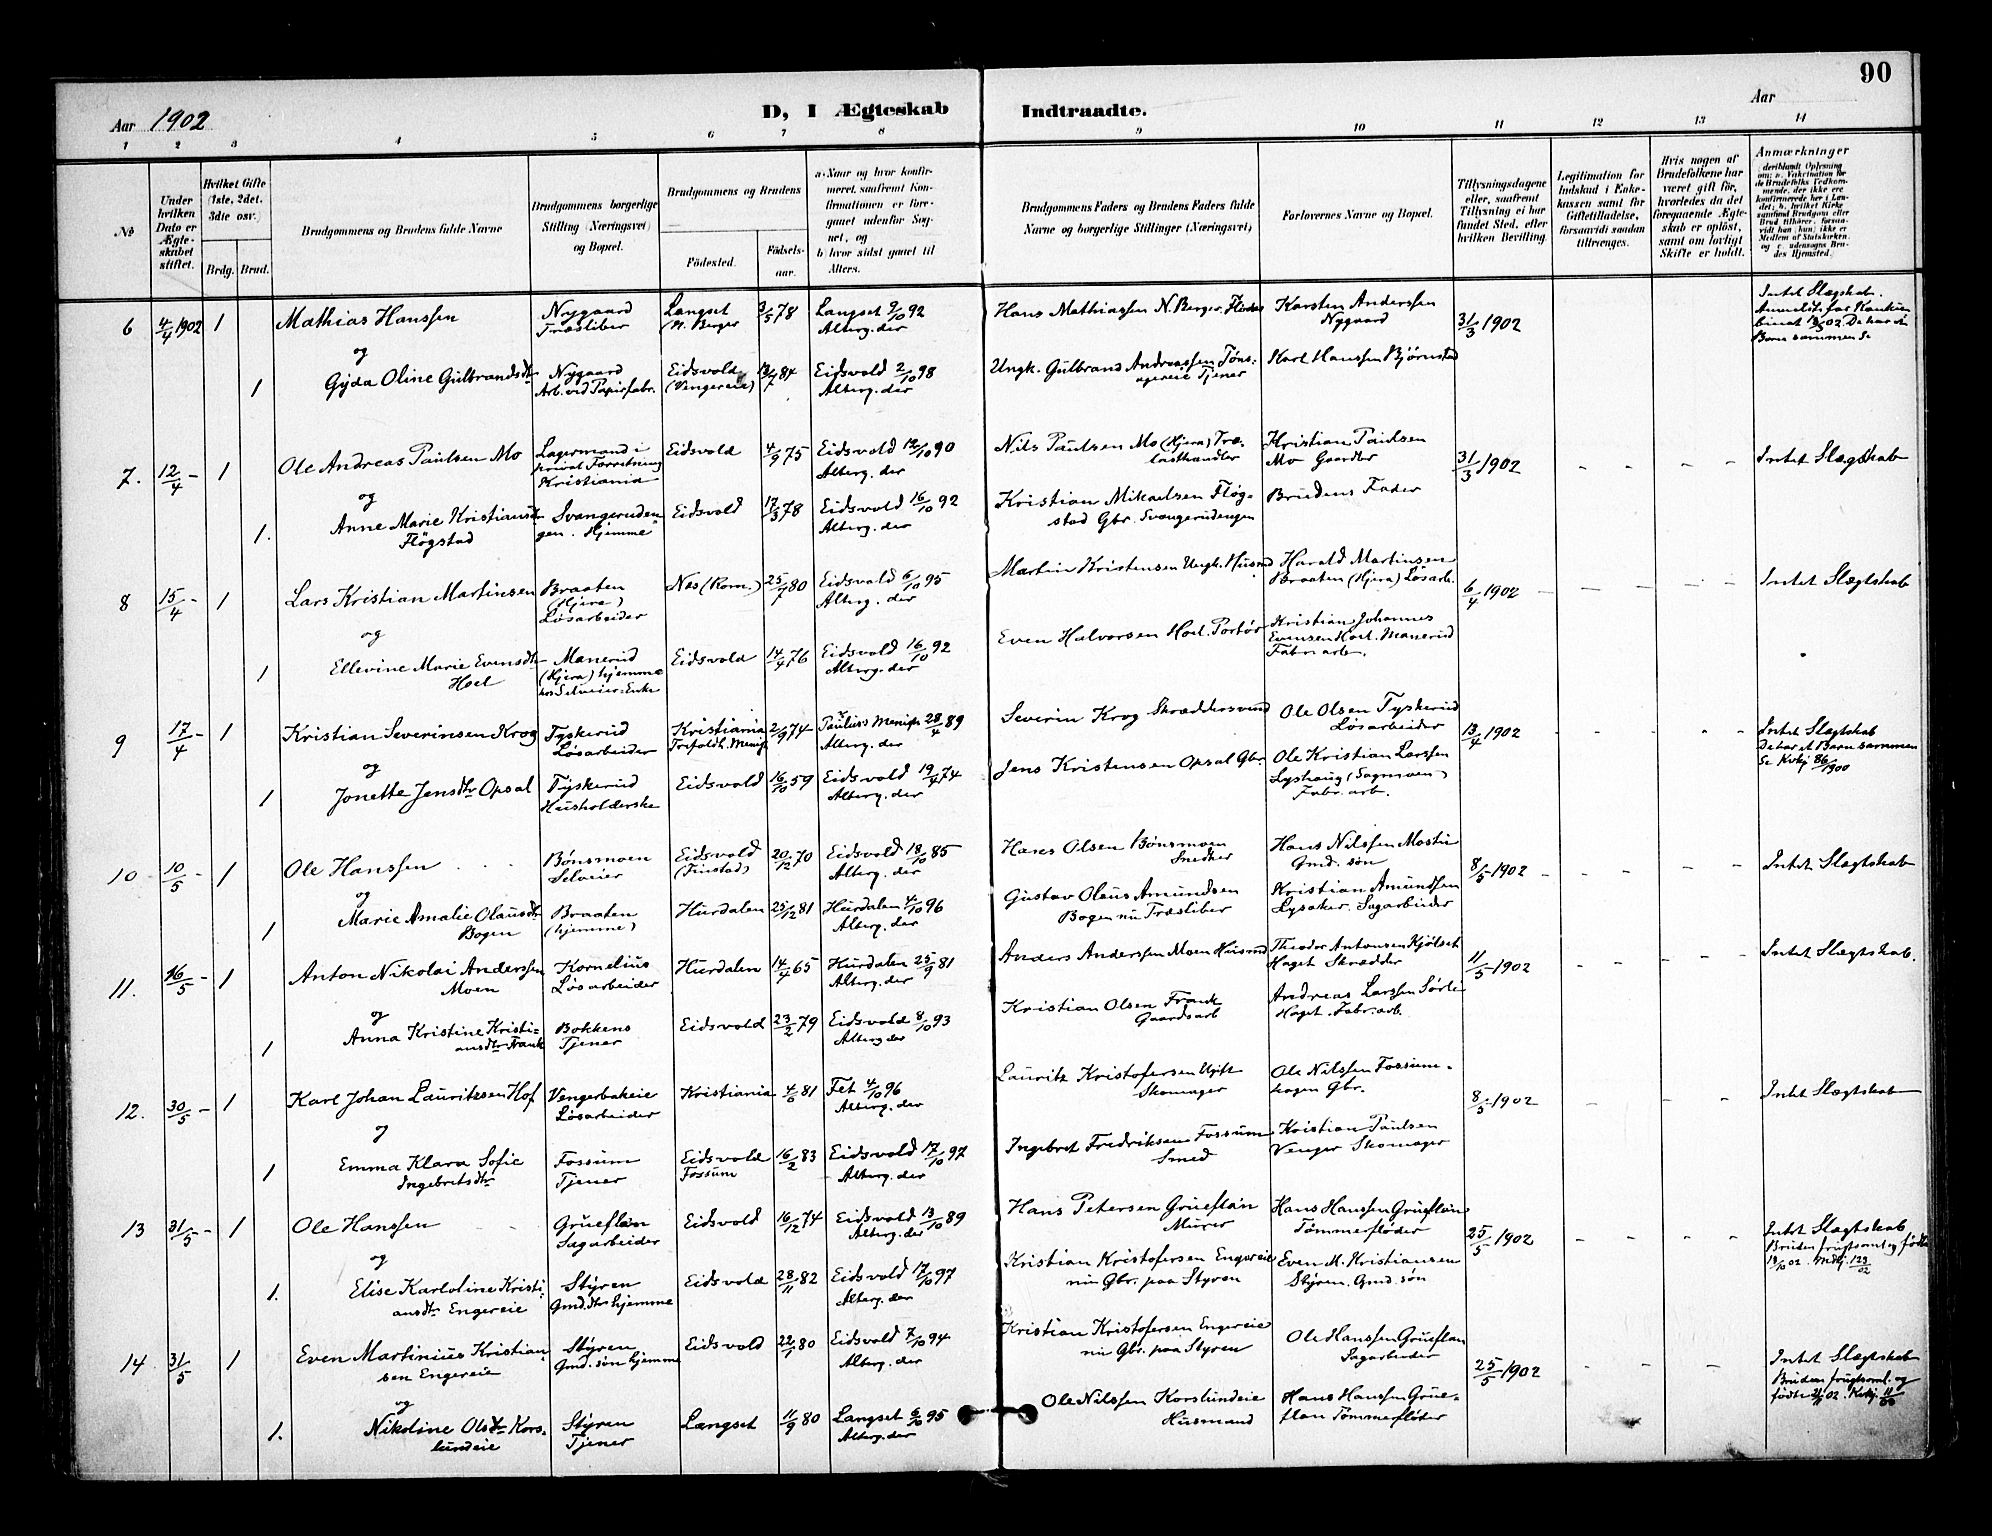 90
Aar 1902
D, I Ægteskab Indtraadte.
Aar
1 2 3 4 5 6 7 8 9 10 11 12 13 14
No
Under hvilken Dato er Ægteskabet stiftet.
Hvilket Gifte (1ste, 2det, 3die osv.)
Brdg. Brud.
Brudgommens og Brudens fulde Navne
Brudgommens borgerlige Stilling (Næringsvei) og Bopæl.
Brudgommens og Brudens
Fødested.
Fødselsaar.
a) Naar og hvor konfirmeret, saafremt Konfirmationen er foregaaet udenfor Sognet, og
b) hvor sidst gaaet til Alters.
Brudgommens Faders og Brudens Faders fulde Navne og borgerlige Stillinger (Næringsvei)
Forlovernes Navne og Bopæl.
Tillysningsdagene eller, saafremt Tillysning ei har fundet Sted, efter hvilken Bevilling.
Legitimation for Indskud i Enkekassen samt for Giftetilladelse, forsaavidt saadan tiltrænges.
Hvis nogen af Brudefolkene har været gift før, hvorledes da det foregaaende Ægteskab er opløst, samt om lovligt Skifte er holdt.
Anmærkninger
6 4/4 1902 1 Mathias Hanssen Nygaard Træsliber Langset N. Berger 3/5 78 Langset 9/10 92 Alterg. der Hans Mathiassen N. Berger Karsten Anderssen Nygaard 31/3 1902 Intet Slægtskab.
og
1 Gyda Oline Gulbrandsdtr Nygaard Arb. ved Papirfabr. Eidsvold (Vengereie) 84 Eidsvold 2/10 98 Alterg. der Ungk. Gulbrand Andreassen Tønsagereie Tjener Karl Hanssen Bjørnstad
7. 12/4 – 1 Ole Andreas Paulsen Mo Lagermand i privat Forretning Kristiania Eidsvold 4/9 75 Eidsvold 12/10 90 Alterg. der Nils Paulsen Mo (Hjera) Trælasthandler Kristian Paulsen Mo Gaardbr 31/3 1902 – – – – Intet Slægtskab
og
1. Anne Marie Kristiansdtr Fløgstad Svangerudengen. Hjemme Eidsvold 17/3 78 Eidsvold 16/10 92 Alterg. der Kristian Mikaelsen Fløgstad Gbr. Svangerudengen Brudens Fader
8 15/4 – 1 Lars Kristian Martinsen Braaten (Hjera) Løsarbeider Nes (Rom.) 25/7 80 Eidsvold 6/10 95 Alterg. der Martin Kristensen Ungk. Husmd Harald Martinsen Braaten (Hjera) Løsarb. 6/4 1902 – – – – Intet Slægtskab
og
1 Ellevine Marie Evensdtr Hoel Manerud (Hjera) hjemme hos Selveier-Enke Eidsvold 14/9 76 Eidsvold 16/10 92 Alterg. der Even Halvorsen Hoel. Portør Kristian Johannes Evensen Hoel. Manerud Fabrikarb.
9 17/4 – 1 Kristian Severinsen Krog Tyskerud Løsarbeider Kristiania 2/9 74 Paulus Menigh 28/4 89 Alterg. der Severin Krog Skræddersvend Ole Olsen Tyskerud Løsarbeider 13/4 1902 – – – Intet Slægtskab De har et Barn sammen Se Kirkbj 86/1900
og
1 Jonette Jensdtr Opsal Tyskerud Husholderske Eidsvold 16/10 59 Eidsvold 19/4 74 Alterg. der Jens Kristensen Opsal Gbr. Ole Kristian Larssen Lyshaug (Sagmoen) Fabr. arb.
10 10/5 – 1 Ole Hanssen Bønsmoen Selveier Eidsvold (Finstad) 20/12 70 Eidsvold 18/10 85 Alterg. der Hans Olsen Bønsmoen Snedker Hans Nilssen Mostu Gmd. søn 8/5 1902 – – – – Intet Slægtskab
og
1 Marie Amalie Olausdtr Bogen Braaten (hjemme) Hurdalen 25/12 81 Hurdalen 4/10 96 Alterg. der Gustav Olaus Amundsen Bogen nu Træsliber Kristian Amundsen Lysaker. Sagarbeider
11. 16/5 – 1 Anton Nikolai Anderssen Moen Kornelius Løsarbeider Hurdalen 14/4 65 Hurdalen 25/9 81 Alterg. der Anders Anderssen Moen Husmd Theodor Antonsen Kjølset Haget Skrædder 11/5 1902 – – – – Intet Slægtskab.
og
1 Anna Kristine Kristiansdtr Frank Bokkens Tjener Eidsvold 23/2 79 Eidsvold 8/10 93 Alterg der Kristian Olsen Frank Gaardsarb Andreas Larssen Sørli Haget. Fabr. arb.
12. 30/5 – 1 Karl Johan Lauritzsen Hof Vengerbakeie Løsarbeider Kristiania 81 Fet 4/10 96 Alterg. der Lauritz Kristofersen Ugift Skomager Ole Nilssen Fossumhagen Gbr. 8/5 1902 – – – Intet Slægtskab
og
1 Emma Klara Sofie Ingebretsdtr Fossum Tjener Eidsvold Fossum 16/2 83 Eidsvold 17/10 97 Alterg. der Ingebret Fredriksen Fossum Smed Kristian Paulsen Venger Skomager
13 31/5 – 1 Ole Hanssen Grueflan Sagarbeider Eidsvold 16/12 74 Eidsvold 13/10 89 Alterg. der Hans Petersen Grueflan Murer Hans Hanssen Grueflan Tømmerfløder 25/5 1902 – – – – Intet Slægtskab Bruden frugtsom og fødte 19/10 02. Mdkj. 123/02
og
1. Elise Karoline Kristiansdtr Engereie Styren Gmd. dtr hjemme Eidsvold 28/11 82 Eidsvold 17/10 97 Alterg. der Kristian Kristofersen Engereie nu Gbr. paa Styren Even M. Kristiansen Styren. Gmd. søn
14 31/5 1 Even Martinius Kristiansen Engereie Styren Gmd. søn hjemme Eidsvold 22/1 80 Eidsvold 7/10 94 Alterg. der Kristian Kristofersen Engereie nu Gbr. paa Styren Ole Hanssen Grueflan Sagarbeider 25/5 1902 – – – Intet Slægtskab Bruden frugtsom. og fødte
og
1. Nikoline Olsdtr Korslundeie Styren Tjener Langset 11/9 80 Langset 6/10 95 Alterg. der Ole Nilssen Korslundeie Husmand Hans Hanssen Grueflan Tømmerfløder